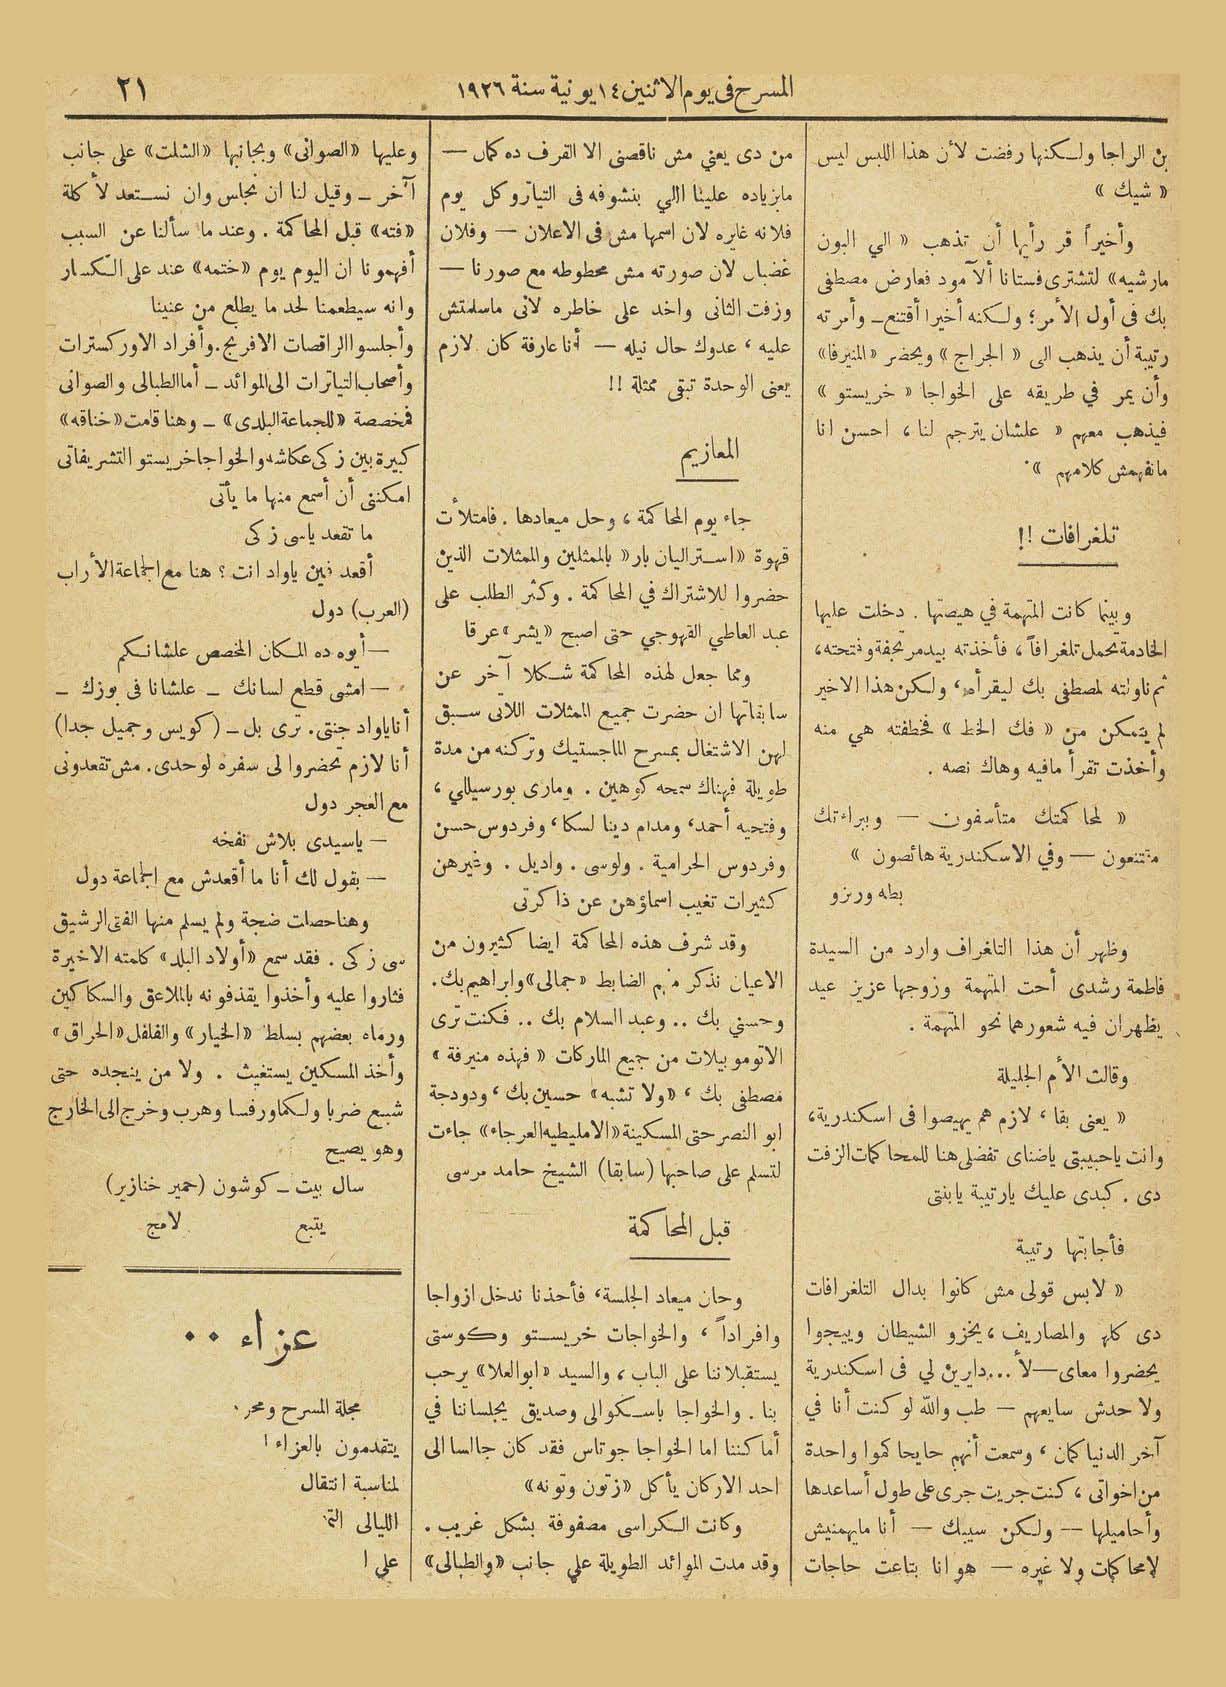 المسرح فى يوم الاثنين ١٤ يونية سنة ١٩٢٦
٢١
بن الراجا ولكنها رفضت لأن هذا اللبس ليس
« شيك »
وأخيراً قر رأيها أن تذهب « الي البون
مارشيه» لتشترى فستانا ألامود فعارض مصطفى
بك فى أول الأمر؛ ولكنه أخيرا أقتنع ــ وأمرته
رتيبة أن يذهب الى « الجراج » ويحضر «المنيرفا»
وأن يمر في طريقه على الخواجا « خريستو »
فيذهب معهم « علشان يترجم لنا، احسن انا
مانفهمش كلامهم » .
تلغرافات !!
وبينما كانت المتهمة في هيصتها . دخلت عليها
الخادمة تحمل تلغرافاً ، فأخذته بيد مرتجفة وفتحته،
ثم ناولته لمصطفى بك ليقرأه، ولكن هذا الاخير
لم يتمكن من « فك الخط » فخطفته هي منه
وأخذت تقرأ مافيه وهاك نصه .
« لمحاكمتك متأسفون — وببراءتك
مقتنعون — وفي الاسكندرية هائصون »
بطه ورزو
وظهر أن هذا التلغراف وارد من السيدة
فاطمة رشدى أحت المتهمة وزوجها عزيز عيد
يظهران فيه شعورهما نحو المتهمة .
وقالت الأم الجليلة
« يعنى بقا ، لازم هم يهيصوا فى اسكندرية،
وانت ياحبيبتى ياضناى تفضلى هنا للمحاكمات الزفت
دى . كبدى عليك يارتيبة يابنتى
فأجابتها رتيبة
« لابس قولى مش كانوا بدال التلغرافات
دى كلها والمصاريف، يخزو الشيطان وييجوا
يحضروا معاى — لأ ... دايرين لي فى اسكندرية
ولا حدش سايعهم — طب والله لو كنت أنا في
آخر الدنيا كمان ، وسمعت أنهم حايحاكموا واحدة
من اخواتى ، كنت جريت جرى على طول أساعدها
وأحاميلها — ولكن سيبك — أنا مايهمنيش
لامحاكمات ولا غيره — هو انا بتاعت حاجات
من دى يعني مش ناقصنى الا القرف ده كمان —
مابزياده علينا اللي بنشوفه فى التياترو كل يوم
فلانه غايره لان اسمها مش فى الاعلان — وفلان
غضبان لان صورته مش محطوطه مع صورنا —
وزفت الثانى واخد على خاطره لانى ماسلمتش
عليه ، عدوك حال نيله — أنا عارفة كان لازم
يعنى الوحدة تبقى ممثلة !!
المعازيم
جاء يوم المحاكمة ، وحل ميعادها . فامتلأت
قهوة «استراليان بار» بالممثلين والممثلات الذين
حضروا للاشتراك في المحاكمة . وكثر الطلب على
عبد العاطي القهوجي حتى اصبح «يشر» عرقا
ومما جعل لهذه المحاكمة شكلا آخر عن
سابقاتها ان حضرت جميع الممثلات اللاتى سبق
لهن الاشتغال بمسرح الماجستيك وتركنه من مدة
طويلة فهناك سمحه كوهين . ومارى بورسيللي ،
وفتحيه أحمد، ومدام دينا لسكا، وفردوس حسن
وفردوس الحرامية . ولوسى . واديل . وغيرهن
كثيرات تغيب اسماؤهن عن ذاكرتى
وقد شرف هذه المحاكمة ايضا كثيرون من
الاعيان نذكر منهم الضابط «جمالى» وابراهيم بك.
وحسني بك .. وعبد السلام بك .. فكنت ترى
الاتوموبيلات من جميع الماركات « فهذه منيرفة »
مصطفى بك ، «ولا تشبه» حسين بك، ودودجة
ابو النصر حتى المسكينة «الامليطيه العرجاء» جاءت
لتسلم على صاحبها (سابقا) الشيخ حامد مرسى
قبل المحاكمة
وحان ميعاد الجلسة، فأخذنا ندخل ازواجا
وافراداً ، والخواجات خريستو وكوستى
يستقبلاننا على الباب ، والسيد «ابوالعلا» يرحب
بنا . والخواجا باسكوالى وصديق يجلساننا في
أماكننا اما الخواجا جوتاس فقد كان جالسا الى
احد الاركان يأكل «زتون وتونه»
وكانت الكراسى مصفوفة بشكل غريب .
وقد مدت الموائد الطويلة علي جانب «والطبالى»
وعليها «الصوانى» وبجانبها «الشلت» على جانب
آخر ــ وقيل لنا ان نجلس وان نستعد لأكلة
«فته» قبل المحاكمة . وعندما سألنا عن السبب
أفهمونا ان اليوم يوم «ختمه» عند على الكسار
وانه سيطعمنا لحد ما يطلع من عنينا
وأجلسوا الراقصات الافرنج. وأفراد الاوركسترات
وأصحاب التياترات الى الموائد ــ أما الطبالى والصوانى
فمخصصة «للجماعة البلدى» ــ وهنا قامت «خناقه»
كبيرة بين زكى عكاشه والخواجا خريستو التشريفاتى
امكننى أن أسمع منها ما يأتى
ما تقعد ياسى زكى
أقعد فين ياواد انت ؟ هنا مع الجماعة الأراب
(العرب) دول
— أيوه ده المكان المخصص علشانكم
— امشى قطع لسانك ــ علشانا فى بوزك ــ
أنا ياواد جنتى. ترى بل ــ (كويس وجميل جدا)
أنا لازم تحضروا لى سفره لوحدى. مش تقعدونى
مع الغجر دول
— ياسيدى بلاش نفخه
— بقول لك أنا ما أقعدش مع الجماعة دول
وهنا حصلت ضجة ولم يسلم منها الفتى الرشيق
سى زكى . فقد سمع «أولاد البلد» كلمته الاخيرة
فثاروا عليه وأخذوا يقذفونه بالملاعق والسكاكين
ورماه بعضهم بسلط «الخيار» والفلفل «الحراق»
وأخذ المسكين يستغيث . ولا من ينجده حتى
شبع ضربا ولكما ورفسا وهرب وخرج الى الخارج
وهو يصيح
سال بيت ــ كوشون (حمير خنازير)
يتبع لامج
عزاء ..
مجلة المسرح ومحر
يتقدمون بالعزاء ا
لمناسبة انتقال
الليالى
علي ا